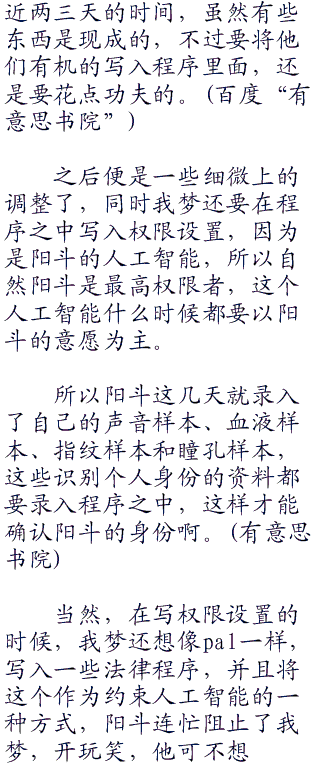 近两三天的时间，虽然有些
东西是现成的，不过要将他
们有机的写入程序里面，还
是要花点功夫的。(百度“有
意思书院”)
之后便是一些细微上的
调整了，同时我梦还要在程
序之中写入权限设置，因为
是阳斗的人工智能，所以自
然阳斗是最高权限者，这个
人工智能什么时候都要以阳
斗的意愿为主。
所以阳斗这几天就录入
了自己的声音样本、血液样
本、指纹样本和瞳孔样本，
这些识别个人身份的资料都
要录入程序之中，这样才能
确认阳斗的身份啊。(有意思
书院)
当然，在写权限设置的
时候，我梦还想像pal一样，
写入一些法律程序，并且将
这个作为约束人工智能的一
种方式，阳斗连忙阻止了我
梦，开玩笑，他可不想